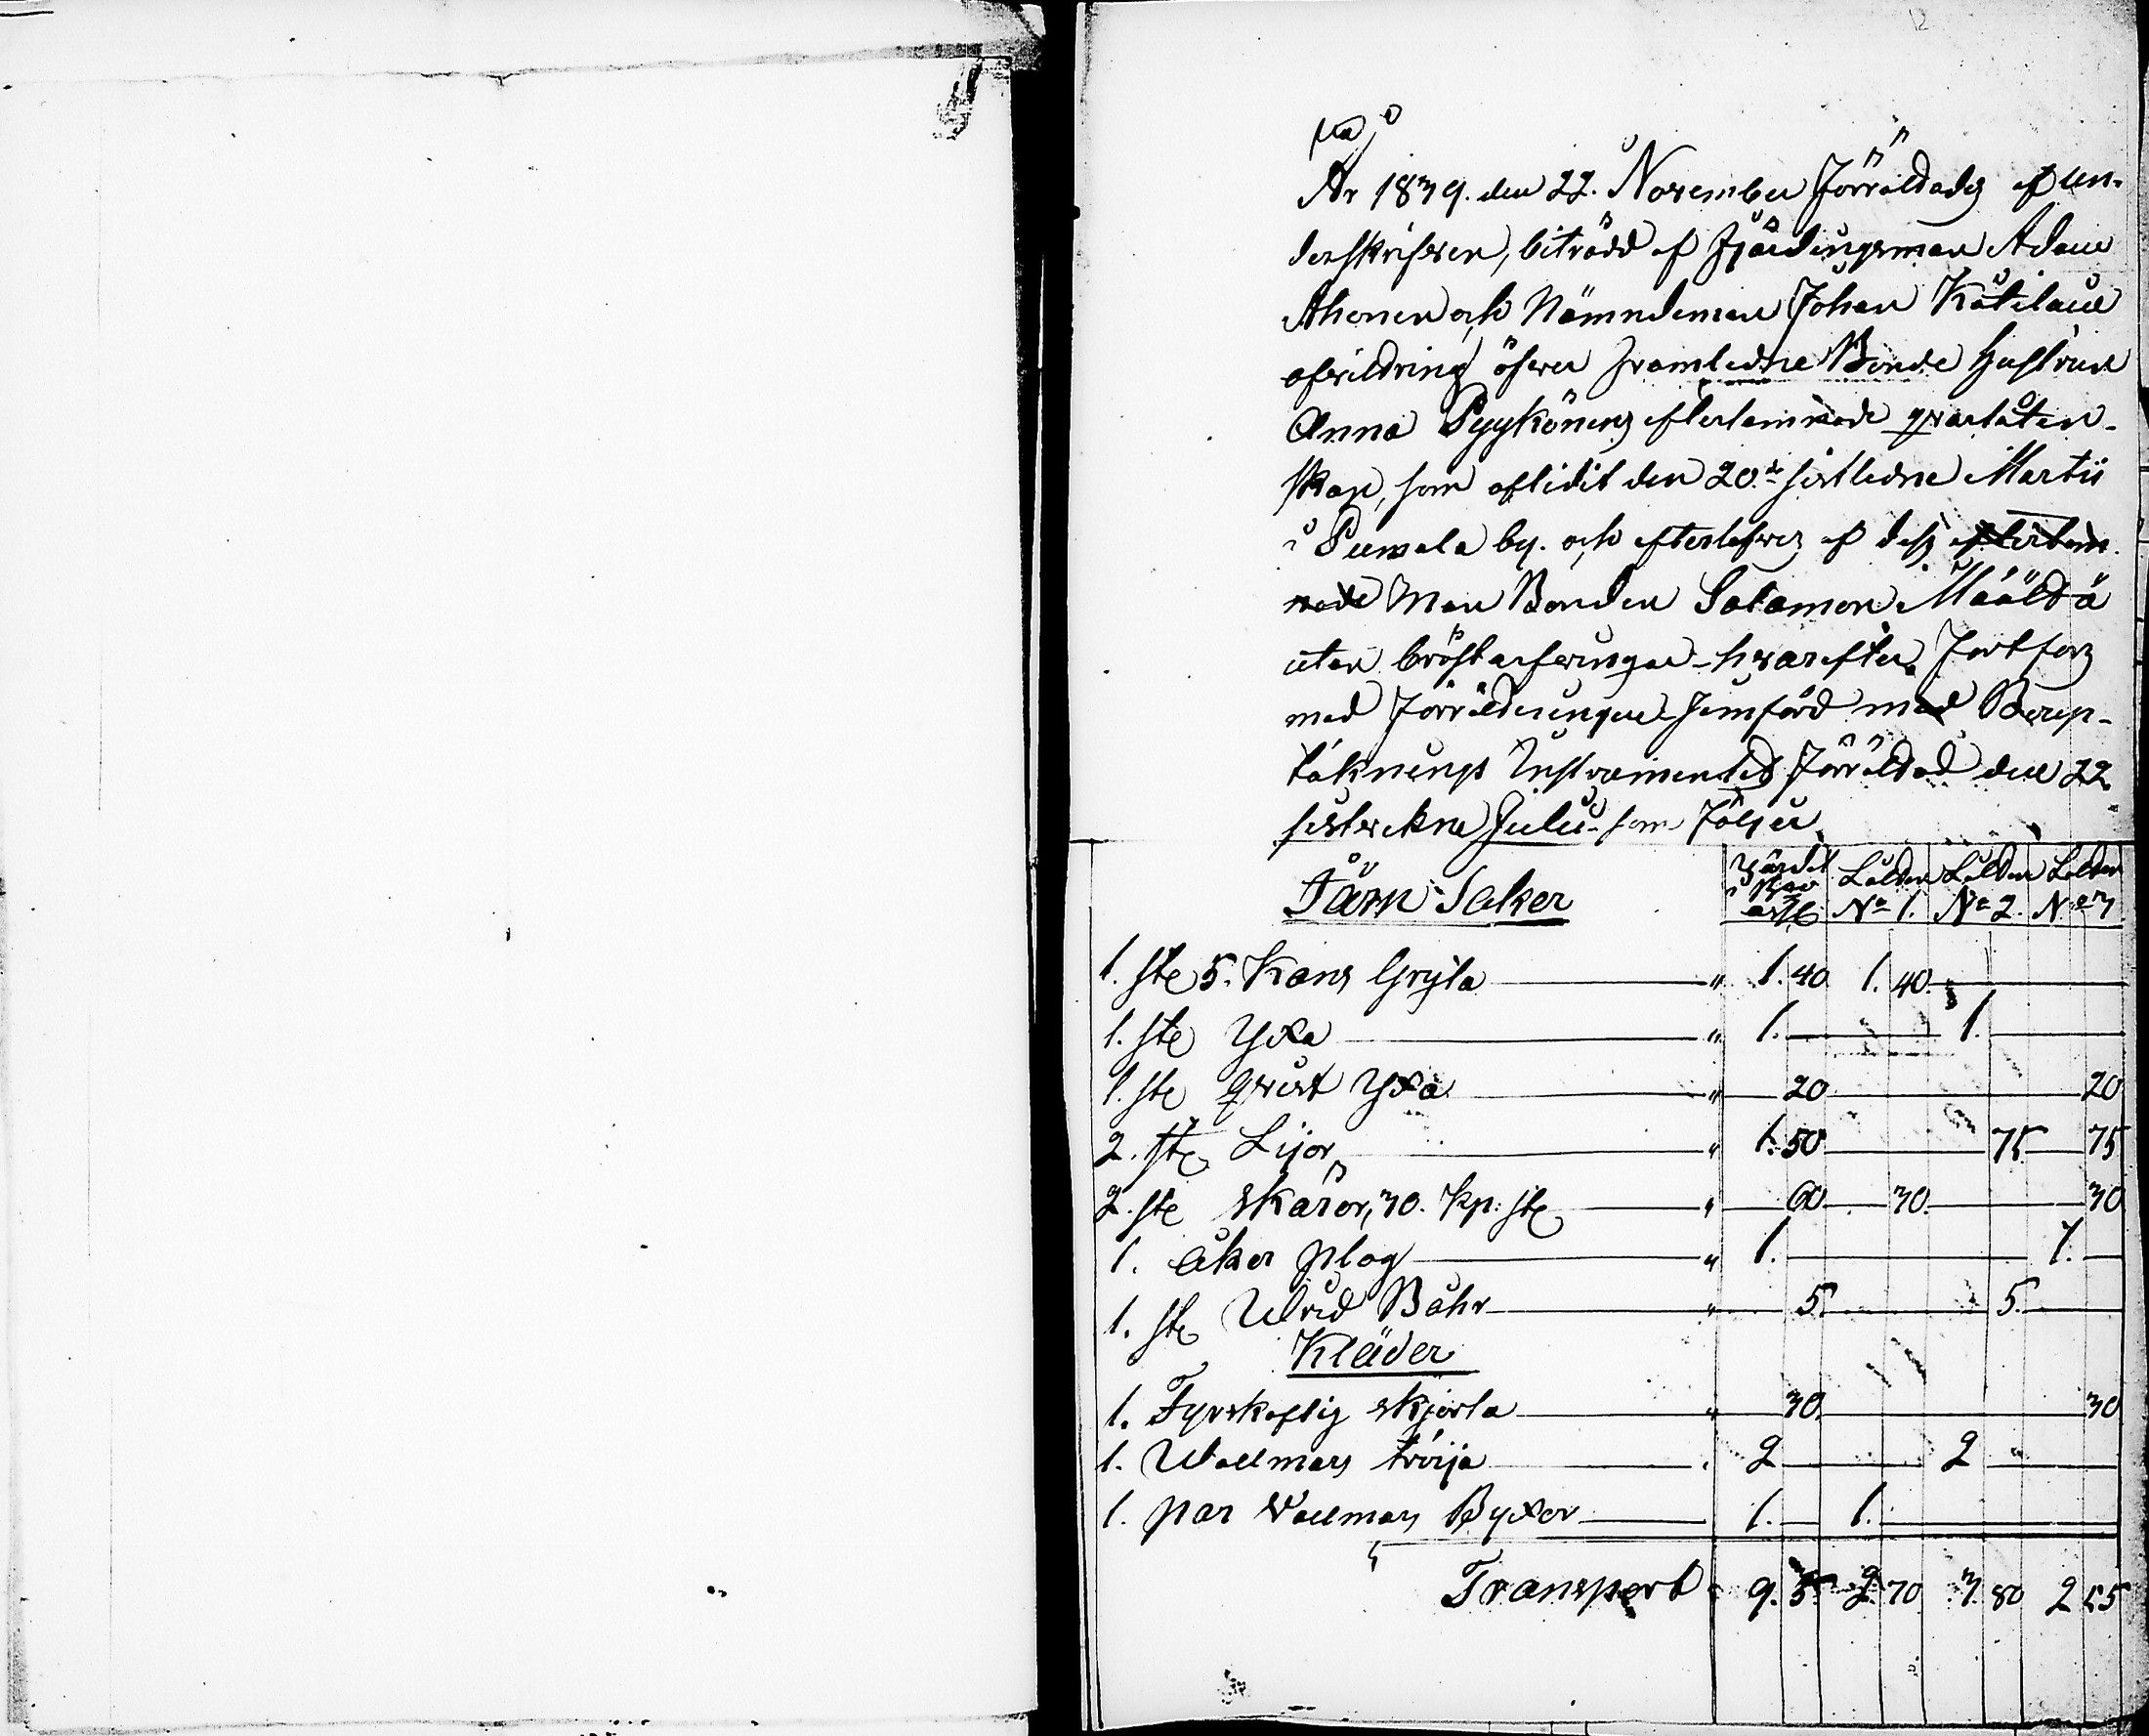 12
År 1839. den 22. November förrättades af un-
derskrifven, biträdd af Fjerdingsman Adam
Ahonen och Nämndeman Johan Kätilain
afvittring öfver framledne Bonde hustrun
Anna Pyykönens efterlemnade qvarlåten-
skap, som aflidit den 20de sistledne Martii
i Pumala by. och efterlefves af dess efterlem-
nade Man Bonden Salamon Määttä
utan bröstarfvingar - hvarefter fortfors
med förrättningen jemförd med Berep-
täknings Instrumentet förrättad den 22
sistvekne Julii som följer
Järn Saker
Värdet
Lotten Lotten Lotten
No 1. No 2. No 3
1. ste 5. Kans Gryta " 1. 40 1. 40.
1. ste Yxa " 1. 1.
1. ste qvist Yxa " 20 20
2. ste Lijor " 1. 50 75 75
2. ste skäror, 30. kp: ste " 60 30 30
1. åker plog " 1. 1.
1. ste Wrid Båhr " 5. 5.
Kläder
1. Fyrskaftig skjorta " 30 30
1. Wallmars tröija 2 2
1. par Vallmars Byxor 1. 1.
Transport 9. 5 2. 70 3. 80 2 55